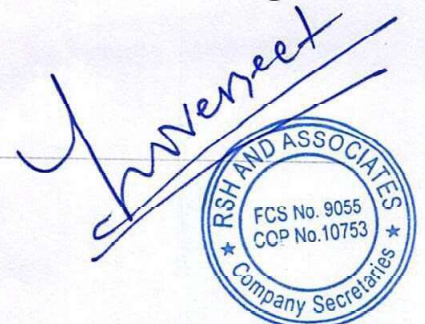 RSH AND ASSOCIATES
FCS No. 9055
COP No.10753
★ Company Secretaries ★